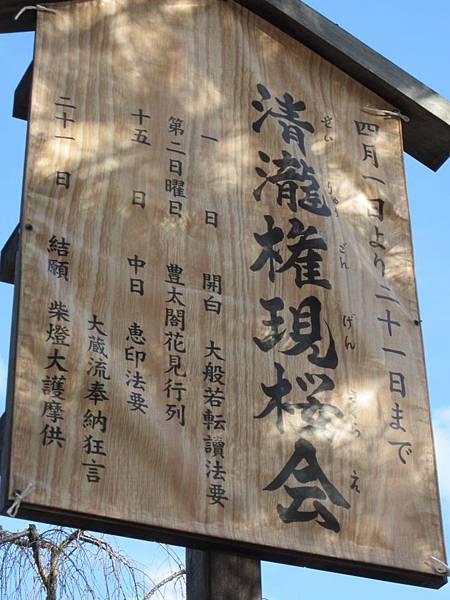 四月一日より二十一日まで
清瀧権現桜会
せい りゅう ごん げん さくら え
一日 開白 大般若転讀法要
第二日曜日 豊太閤花見行列
十五日 中日 恵印法要
大蔵流奉納狂言
二十一日 結願 柴燈大護摩供